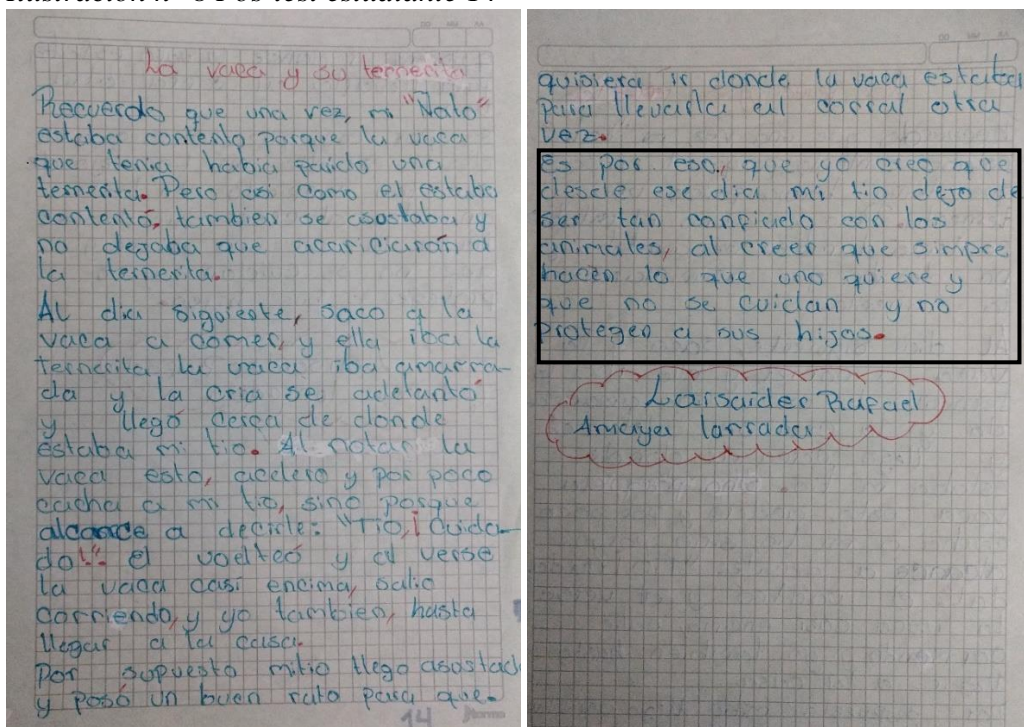 La vaca y su ternerita
Recuerdo que una vez, mi "Ñato"
estaba contento porque la vaca
que tenia habia parido una
ternerita. Pero asi como el estaba
contento, tambien se asustaba y
no dejaba que acariciarán a
la ternerita.
Al dia siguiente, saco a la
vaca a comer, y ella iba la
ternerita, la vaca iba amarra-
da y la cria se adelantó
y llegó cerca de donde
estaba mi tio. Al notar la
vaca esto, acelero y por poco
cacha a mi tio, sino porque
alcance a decirle: "Tío, ¡Cuida-
do!" el volteó y al verse
la vaca casi encima, salio
corriendo, y yo tambien, hasta
llegar a la casa.
Por supuesto mi tio llego asustado
y pasó un buen rato para que
14
norma
quisiera ir donde la vaca estaba
para llevarla al corral otra
vez.
es por eso, que yo creo que
desde ese dia mi tio dejo de
ser tan confiado con los
animales, al creer que simpre
hacen lo que uno quiere y
que no se cuidan y no
protegen a sus hijos.
Larsaider Rafael
Amaya